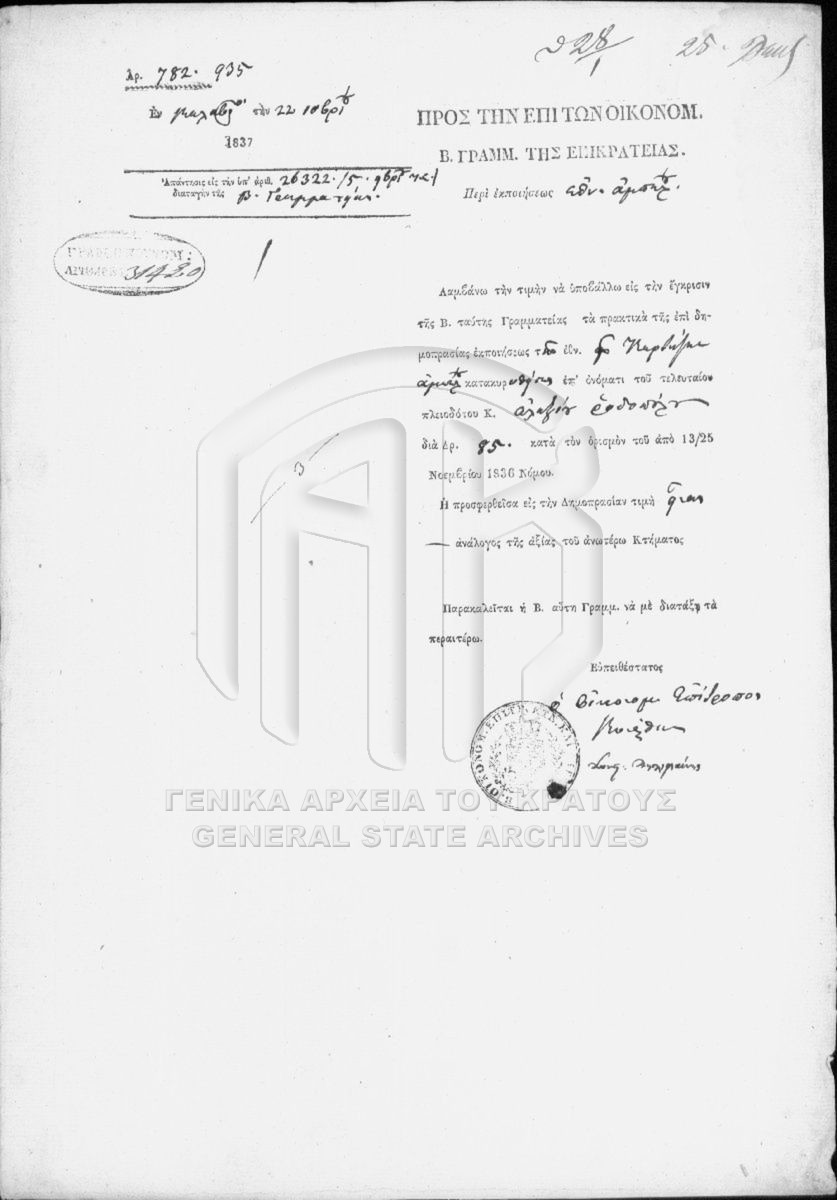 28/1 25
Ἀρ. 782. 935
Ἐν τὴν 22 10βρίου
1837
Ἀπάντησις εἰς τὴν ὑπ' ἀριθ. 26322. /5. 9βρίου
διαταγὴν τῆς Β. Γραμματείας.
ΠΡΟΣ ΤΗΝ ΕΠΙ ΤΩΝ ΟΙΚΟΝΟΜ.
Β. ΓΡΑΜΜ. ΤΗΣ ΕΠΙΚΡΑΤΕΙΑΣ.
Περὶ ἐκποιήσεως ἐθν. ἀμπέλου.
31420
Λαμβάνω τὴν τιμὴν νὰ ὑποβάλλω εἰς τὴν ἔγκρισιν
τῆς Β. ταύτης Γραμματείας τὰ πρακτικὰ τῆς ἐπὶ δη-
μοπρασίας ἐκποιήσεως τ ἐθν.
κατακυρωθείσης ἐπ' ὀνόματι τοῦ τελευταίου
πλειοδότου Κ.
διὰ Δρ. 85. κατὰ τὸν ὁρισμὸν τοῦ ἀπὸ 13/25
Νοεμβρίου 1836 Νόμου.
Ἡ προσφερθεῖσα εἰς τὴν Δημοπρασίαν τιμὴ
ἀνάλογος τῆς ἀξίας τοῦ ἀνωτέρω Κτήματος
3
Παρακαλεῖται ἡ Β. αὕτη Γραμμ. νὰ μὲ διατάξῃ τὰ
περαιτέρω.
Εὐπειθέστατος
ὁ Οἰκονομ. Ἐπίτροπος
ΓΕΝΙΚΑ ΑΡΧΕΙΑ ΤΟΥ ΚΡΑΤΟΥΣ
GENERAL STATE ARCHIVES